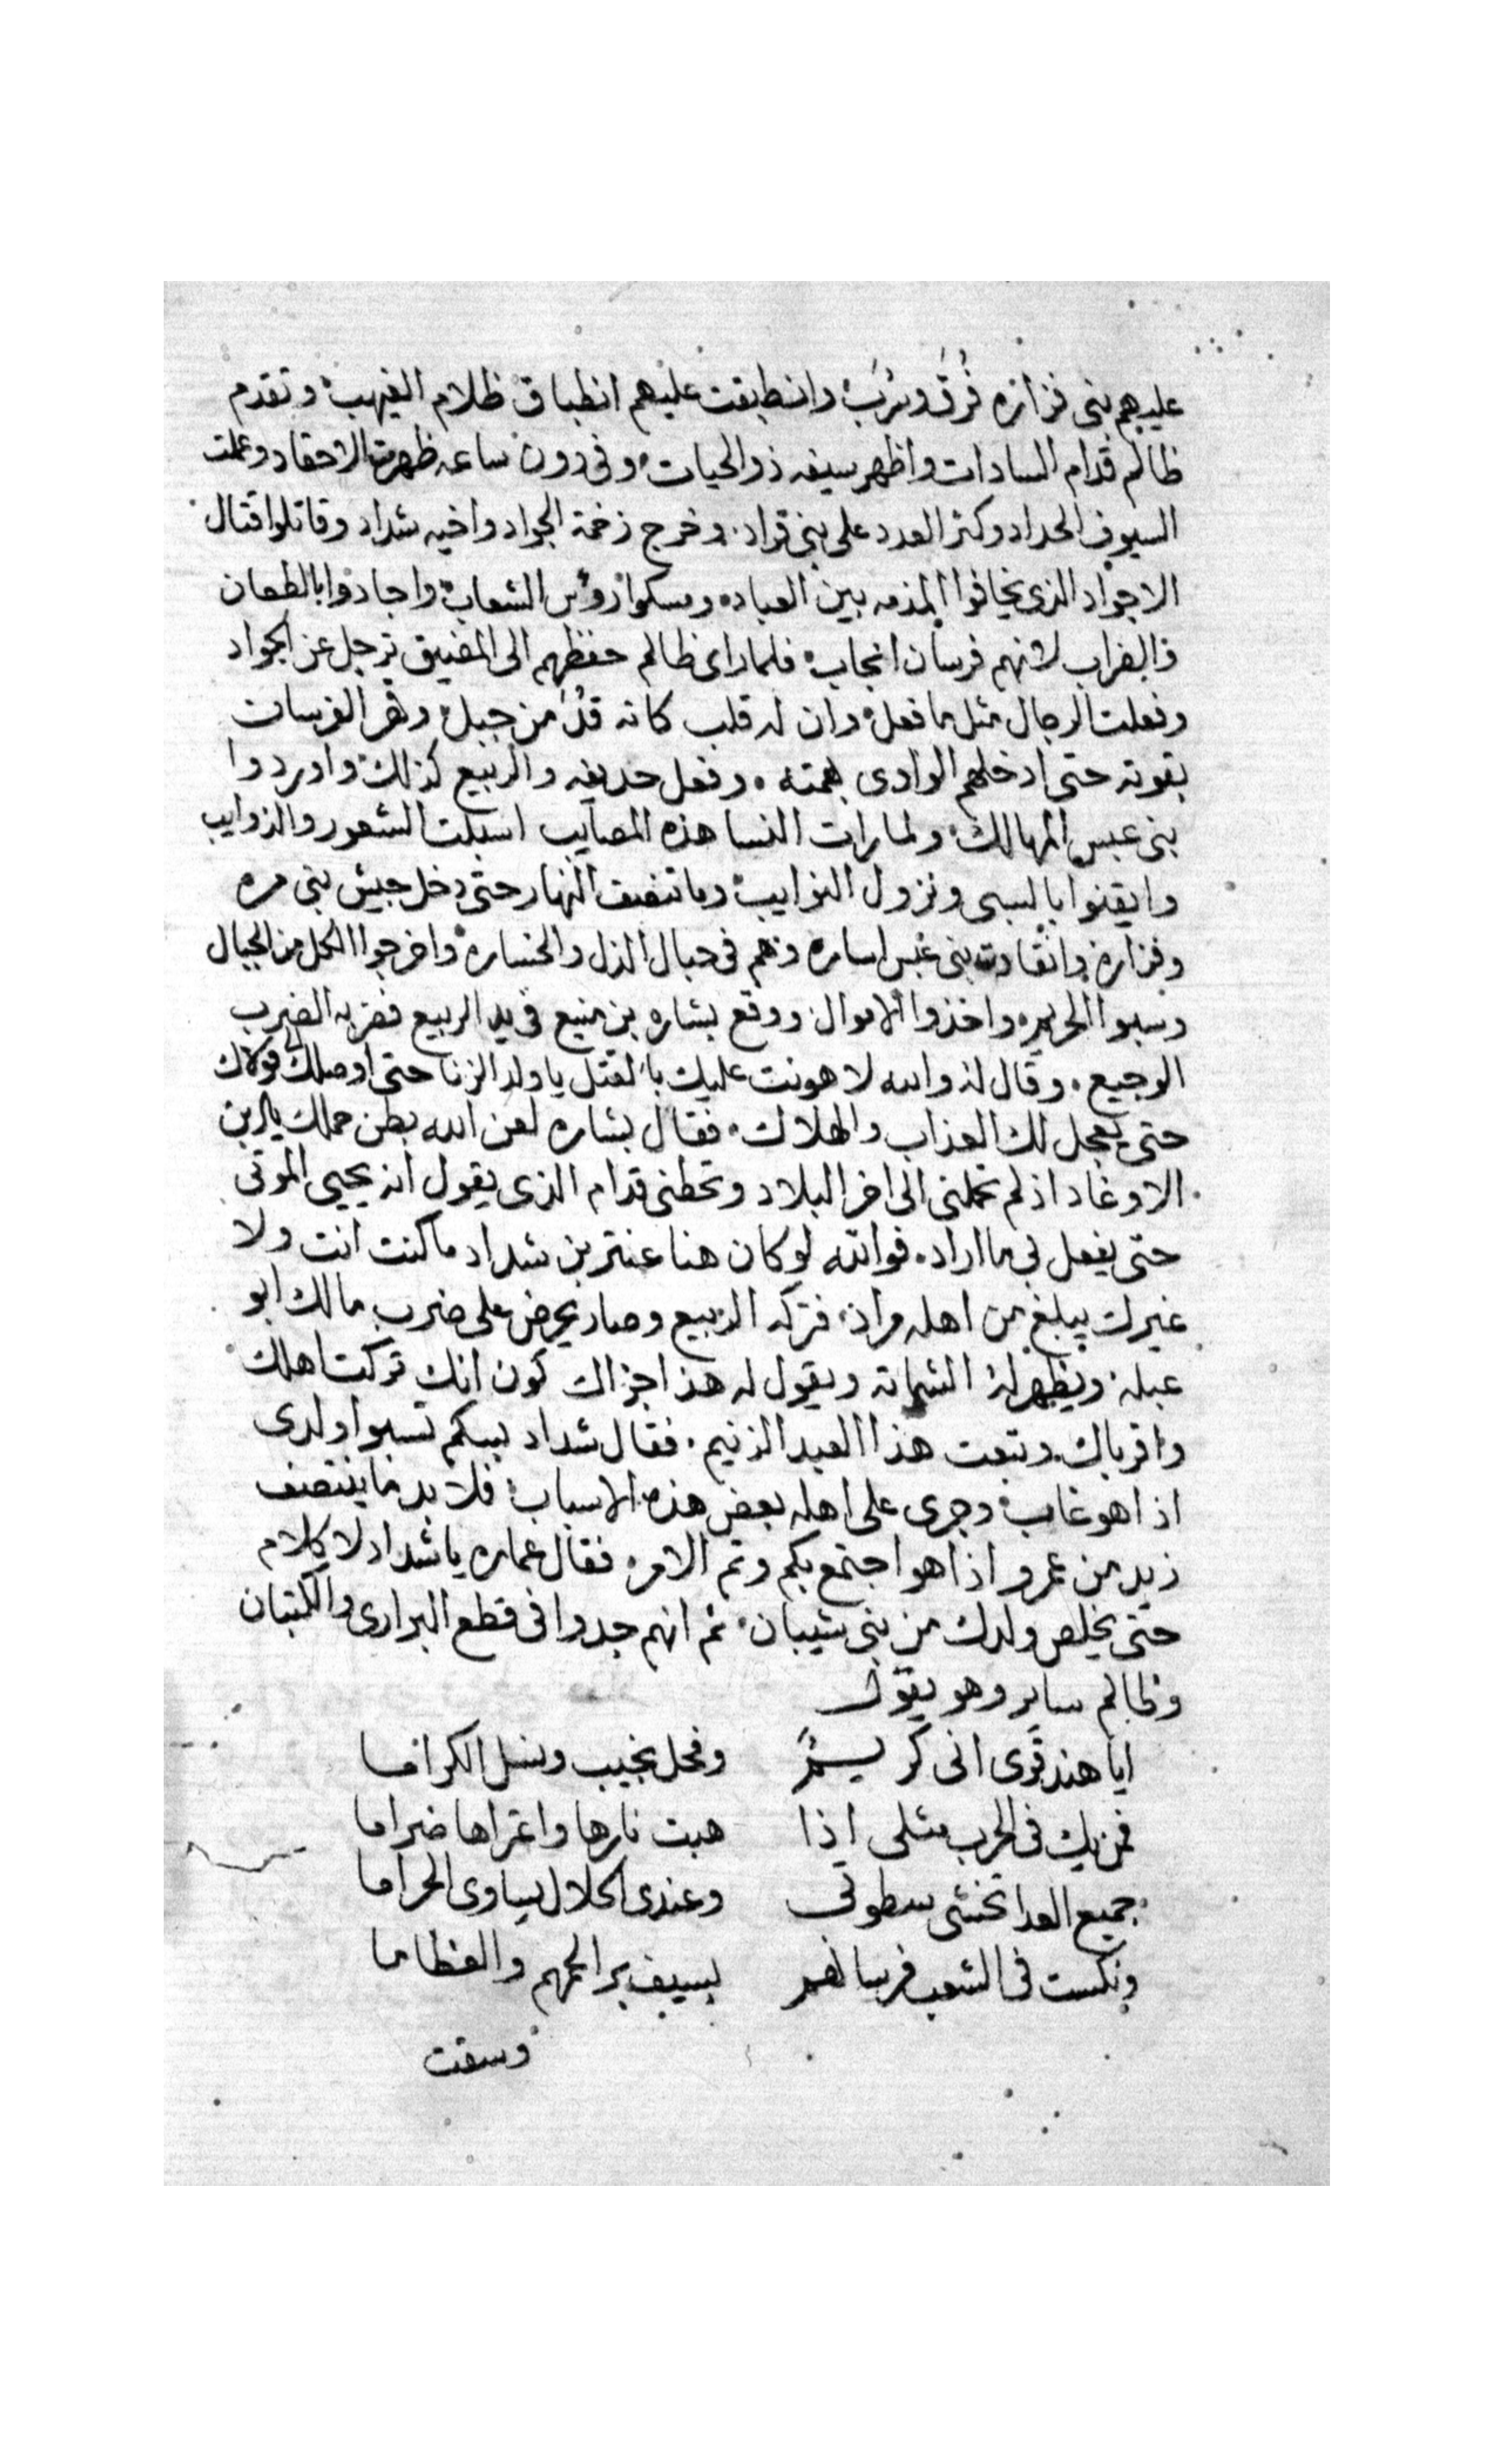 عليهم بنى فزازه فُرقَ وسُرَب وانطبقت عليهم انطباق ظلام الغيهب وتقدم
ظالم قدام السادات واظهر سيفه ذو الحيات وفى دون ساعه ظهرت الاحقاد وعملت
السيوف الحداد وكثر العدد على بنى قراد وخرج زخمة الجواد واخيه شداد وقاتلوا قتال
الاجواد الذى يخافوا المذمه بين العباد ومسكوا رؤس الشعاب واجادوا بالطعان
والضراب لانهم فرسان انجاب فلما راى ظالم حفظهم الى المضيق ترجل عن الجواد
وفعلت الرجال مثل ما فعل وان له قلب كانه قُدَّ من جبل وقهر الفرسان
بقوته حتى ادخلهم الوادى بهمته وفعل حديفه والربيع كذلك واوردوا
بنى عبس المهالك ولما رات النسا هذه المصايب اسبلت الشعور والذوايب
وايقنوا بالسبى ونزول النوايب وما تنصف النهار حتى دخل جيش بنى مره
وفزاره وانقادت بنى عبس اساره وهم فى حبال الذل والخساره واخرجوا الكل من الجبال
وسبوا الحريم واخذوا الاموال ووقع بشاره بن منيع فى يد الربيع فضربه الضرب
الوجيع وقال له والله لا هونت عليك بالقتل يا ولد الزنا حتى اوصلك لمولاك
حتى يعجل لك العذاب والهلاك فقال بشاره لعن الله بطن حملك يا ابن
الاوغاد اذ لم تحملنى الى اخر البلاد وتحطنى قدام الذى يقول انه يحيى الموتى
حتى يفعل بى ما اراد فوالله لو كان هنا عنتر بن شداد ما كنت انت ولا
غيرك يبلغ من اهله مراد فتركه الربيع وصار يحرض على ضرب مالك ابو
عبله ويظهر له الشماته ويقول له هذا جزاك كون انك تركت اهلك
واقرباك وتبعت هذا العبد الزنيم فقال شداد بسكم تسبوا ولدى
اذا هو غاب وجرى على اهله بعض هذه الاسباب فلا بد ما ينتصف
زيد من عمرو اذا هو اجتمع بكم وتم الامر فقال عماره يا شداد لا كلام
حتى يخلص ولدك من بنى شيبان ثم انهم جدوا فى قطع البرارى والكتبان
وظالم ساير وهو يقول
ايا هند قرى انى كر يسرُّ وفحل نجيب ونسل الكراما
فمن يك فى الحرب مثلى اذا هبت نارها واعتراها ضراما
جميع العدا تخشى سطوتى وعندى الحلال يساوى الحراما
ونكست فى الشعب فرسانهم بسيف برا لحمهم والعظاما
وسقت